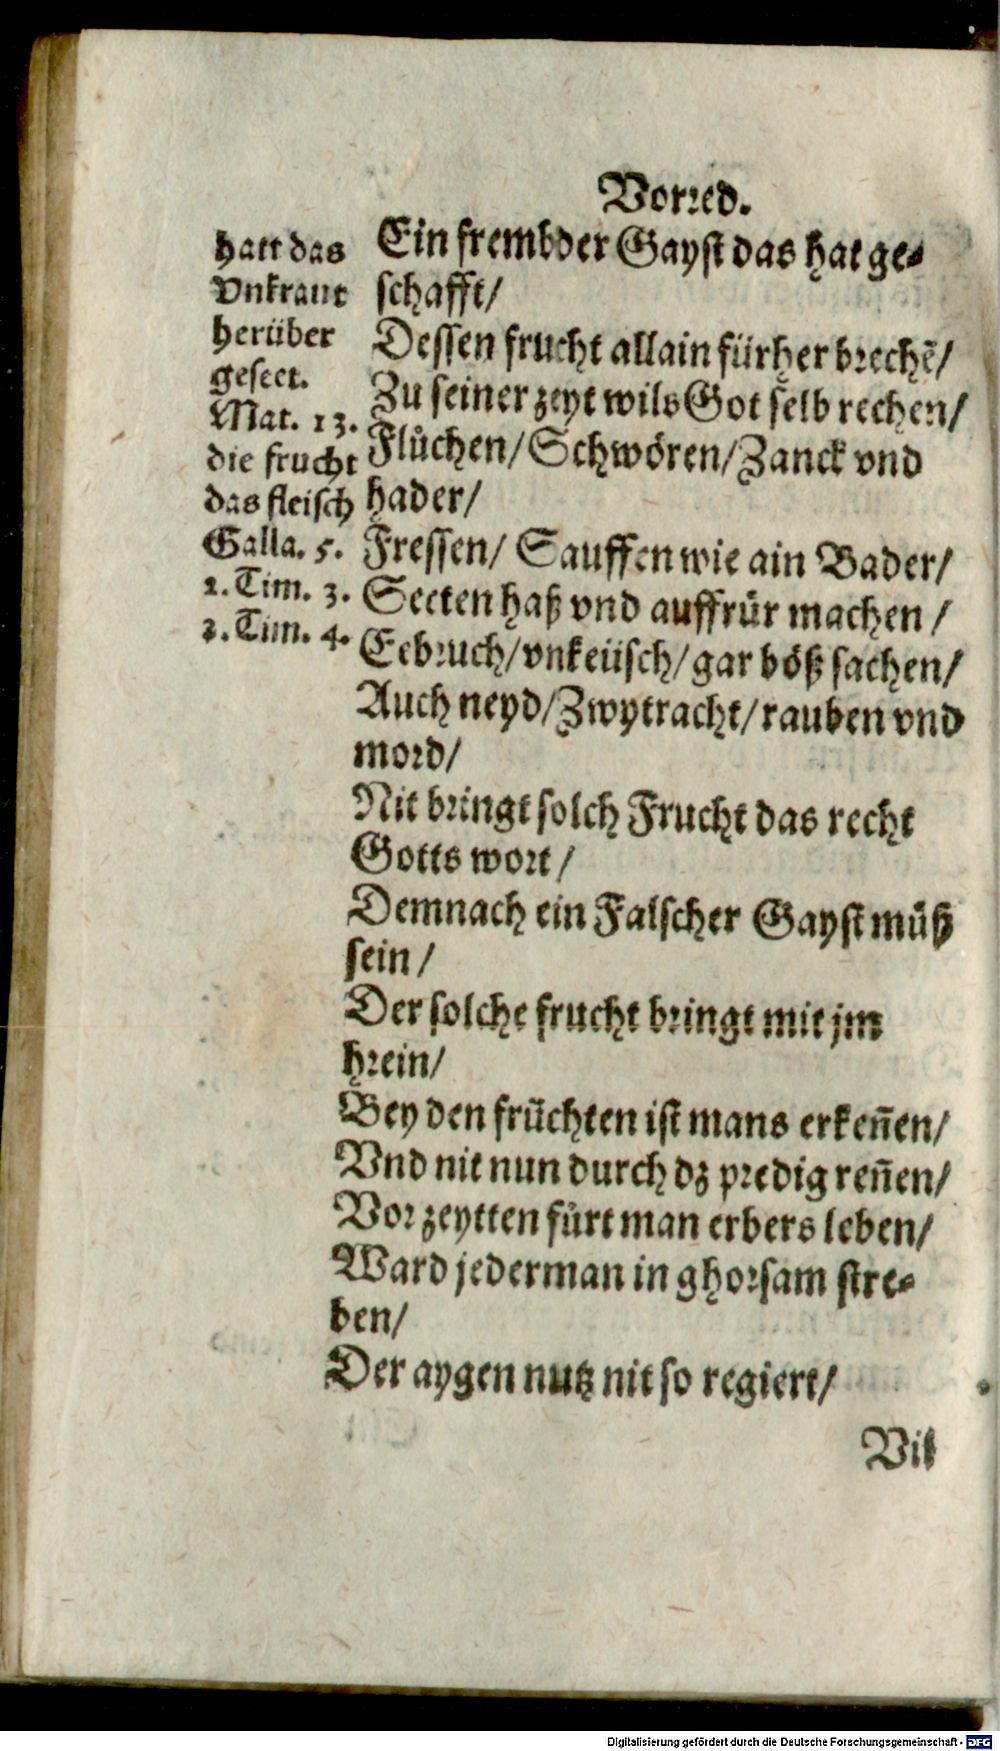 Vorred.
hatt das
vnkraut
herüber
geseet.
Mat. 13.
die frucht
das fleisch
Galla. 5.
1. Tim. 3.
2. Tim. 4.
Ein frembder Gayst das hat ge-
schafft/
Dessen frucht allain fürher brechē/
Zu seiner zeyt wils Got selb rechen/
Flůchen/ Schwören/ Zanck vnd
hader/
Fressen/ Sauffen wie ain Bader/
Secten haß vnd auffrůr machen /
Eebruch/ vnkeüsch/ gar böß sachen/
Auch neyd/ Zwytracht/ rauben vnd
mord/
Nit bringt solch Frucht das recht
Gotts wort /
Demnach ein Falscher Gayst můß
sein /
Der solche frucht bringt mit jm
hrein/
Bey den früchten ist mans erkeñen/
Vnd nit nun durch dz predig reñen/
Vor zeytten fůrt man erbers leben/
Ward jederman in ghorsam stre-
ben/
Der aygen nutz nit so regiert/
Vil
Digitalisierung gefördert durch die Deutsche Forschungsgemeinschaft - DFG